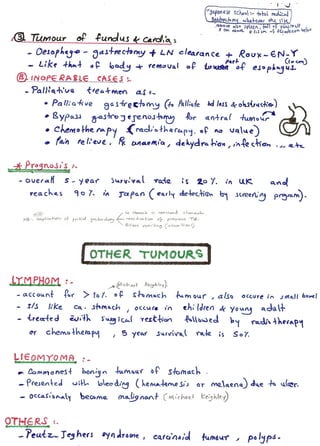 - Japanese school :- total radical
gastrectomy whatever the site
③ Tumour of fundus & cardia :
- Oesophago - gastrectomy + LN clearance + Roux-EN-Y
- Like that of body + removal of lower part of esophagus
Ⓑ INOPERABLE CASES :-
- Palliative treatment as :-
• Palliative gastrectomy (to Palliate bd loss & obstruction)
• Bypass gastrojejenostomy for antral tumour
• Chemotherapy (radiotherapy of no value)
• Pain relieve, R anaemia, dehydration, infection ... etc
* Prognosis :-
- overall 5-year survival rate is 20% in UK and
reaches 90% in Japan (early detection by screening program).
OTHER TUMOURS
LYMPHOM :-
(Michael Keighley)
- account for > 10% of stomach tumour, also occure in small bowel
- S/S like ca. stomach, occure in children & young adult
- treated with surgical resction followed by radiotherapy
or chemotherapy, 5 year survival rate is 50%.
LIEOMYOMA :-
- Commonest benign tumour of stomach.
- Presented with bleeding (hematemesis or malaena) due to ulcer.
- occasionaly become malignant (Michael Keighley)
OTHERS :-
- Peutz-Jeghers syndrome, carcinoid tumour, polyps.